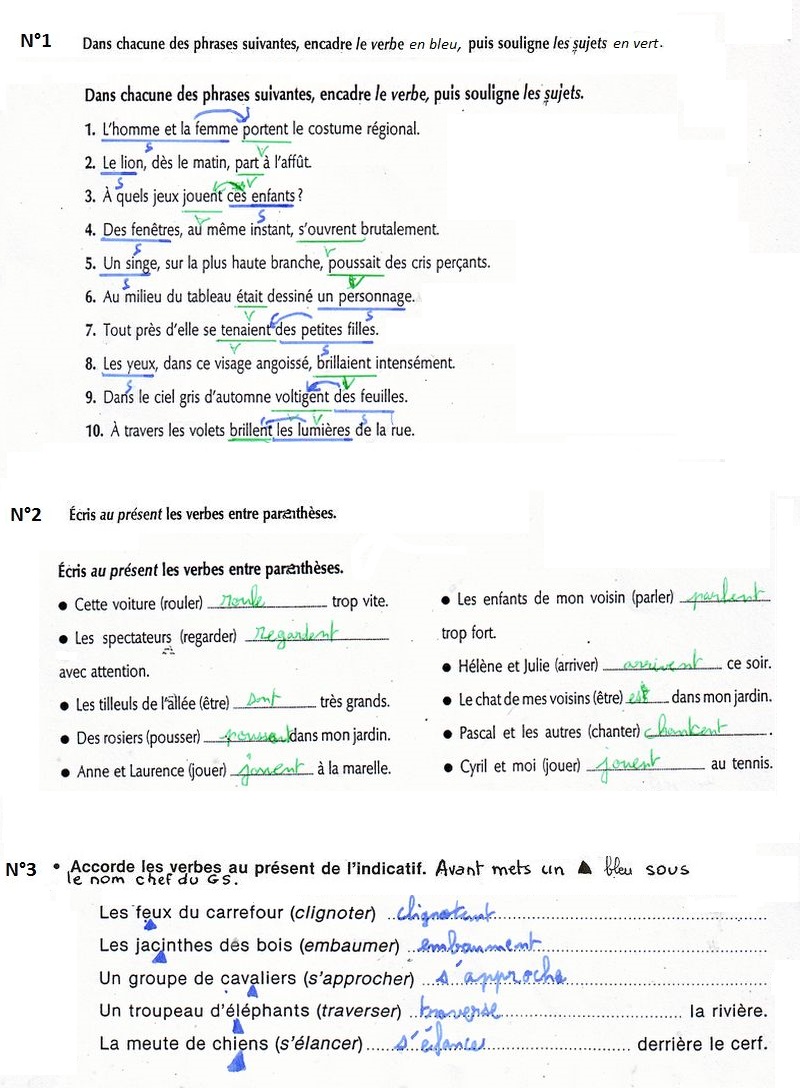 N°1 Dans chacune des phrases suivantes, encadre le verbe en bleu, puis souligne les sujets en vert.
Dans chacune des phrases suivantes, encadre le verbe, puis souligne les sujets.
1. L'homme et la femme portent le costume régional.
S V
2. Le lion, dès le matin, part à l'affût.
S V
3. À quels jeux jouent ces enfants ?
V S
4. Des fenêtres, au même instant, s'ouvrent brutalement.
S V
5. Un singe, sur la plus haute branche, poussait des cris perçants.
S V
6. Au milieu du tableau était dessiné un personnage.
V S
7. Tout près d'elle se tenaient des petites filles.
V S
8. Les yeux, dans ce visage angoissé, brillaient intensément.
S V
9. Dans le ciel gris d'automne voltigent des feuilles.
V S
10. À travers les volets brillent les lumières de la rue.
N°2 Écris au présent les verbes entre parenthèses.
Écris au présent les verbes entre parenthèses.
• Cette voiture (rouler) roule trop vite.
• Les spectateurs (regarder) regardent
avec attention.
• Les tilleuls de l'allée (être) sont très grands.
• Des rosiers (pousser) poussent dans mon jardin.
• Anne et Laurence (jouer) jouent à la marelle.
• Les enfants de mon voisin (parler) parlent
trop fort.
• Hélène et Julie (arriver) arrivent ce soir.
• Le chat de mes voisins (être) est dans mon jardin.
• Pascal et les autres (chanter) chantent.
• Cyril et moi (jouer) jouent au tennis.
N°3 • Accorde les verbes au présent de l'indicatif. Avant mets un ▲ bleu sous
le nom chef du GS.
Les feux du carrefour (clignoter) clignotent
Les jacinthes des bois (embaumer) embaument
Un groupe de cavaliers (s'approcher) s'approche
Un troupeau d'éléphants (traverser) traverse la rivière.
La meute de chiens (s'élancer) s'élance derrière le cerf.